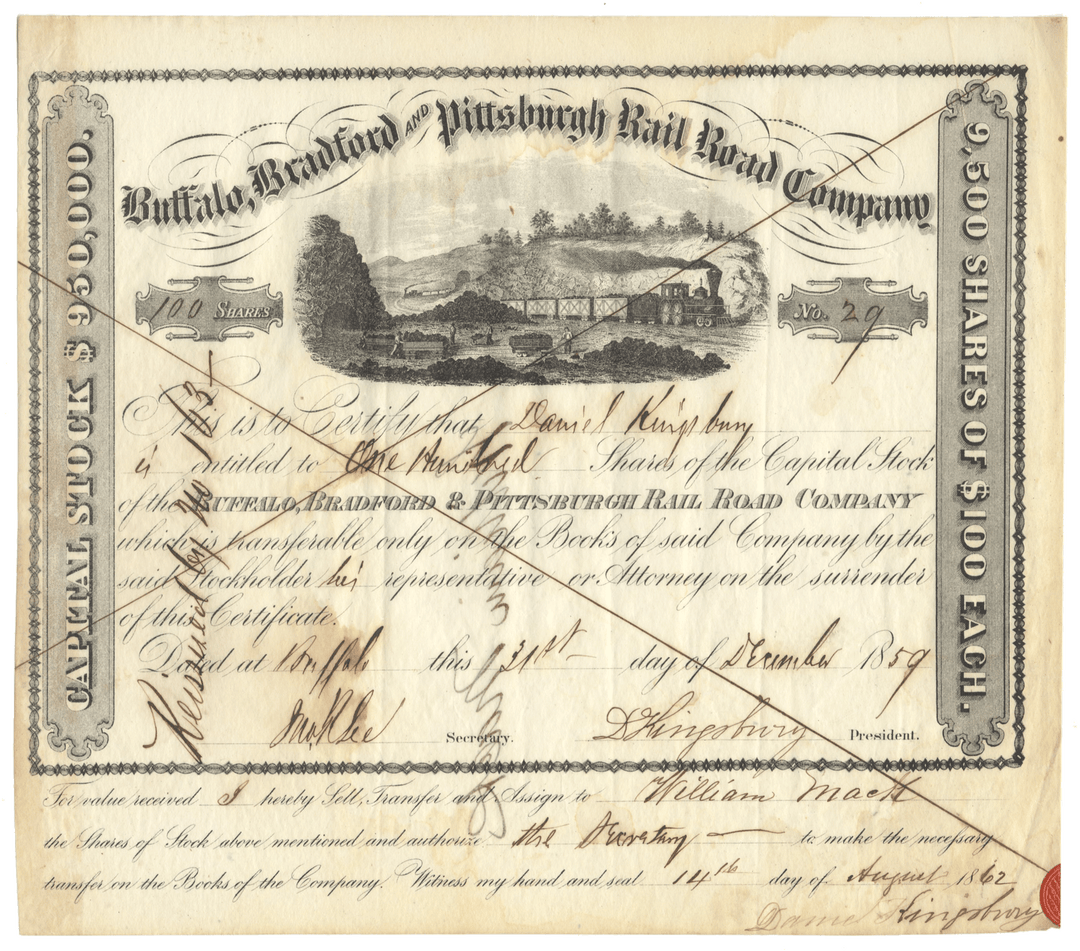 Buffalo, Bradford AND Pittsburgh Rail Road Company
CAPITAL STOCK $950,000.
9,500 SHARES OF $100 EACH.
100 SHARES
No. 29
This is to Certify that Daniel Kingsbury
is entitled to One Hundred Shares of the Capital Stock
of the BUFFALO, BRADFORD & PITTSBURGH RAIL ROAD COMPANY
which is transferable only on the Books of said Company by the
said Stockholder his representative or Attorney on the surrender
of this Certificate.
Dated at Buffalo this 31st day of December 1859
Secretary. DKingsbury President.
by No 163
For value received I hereby Sell, Transfer and Assign to William Mack
the Shares of Stock above mentioned and authorize the Secretary to make the necessary
transfer on the Books of the Company. Witness my hand and seal 14th day of August 1862
Daniel Kingsbury